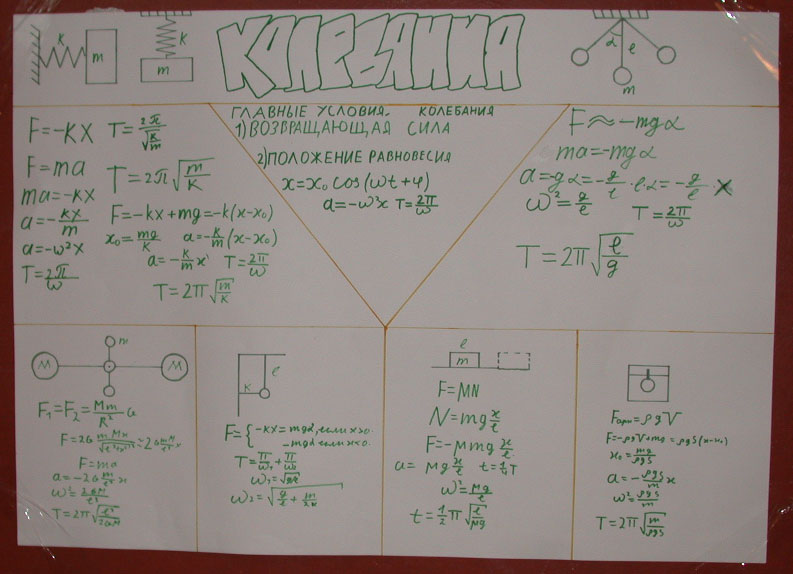 КОЛЕБАНИЯ
k
m
k
m
α
l
m
F=-kx T=2π/√(k/m)
F=ma
T=2π√(m/k)
ma=-kx
a=-kx/m
a=-ω²x
T=2π/ω
F=-kx+mg=-k(x-x₀)
x₀=mg/k a=-k/m(x-x₀)
a=-k/m x T=2π/ω
T=2π√(m/k)
ГЛАВНЫЕ УСЛОВИЯ КОЛЕБАНИЯ
1)ВОЗВРАЩАЮЩАЯ СИЛА
2)ПОЛОЖЕНИЕ РАВНОВЕСИЯ
x=x₀ cos(ωt+φ)
a=-ω²x T=2π/ω
F≈-mgα
ma=-mgα
a=-gα=-g/l·lα=-g/l x
ω²=g/l
T=2π/ω
T=2π√(l/g)
m
M
M
F₁=F₂=Mm/R² G
F=ma
T=2π√
k
l
F={-kx-mgα, если x>0
-mgα если x<0
T=π/ω₁+π/ω₂
l
m
F=μN
N=mg x/l
F=-μmg x/l
a=μg x/l t=¼T
ω²=μg/l
t=½π√(l/μg)
Fарх=ρgV
F=-ρgV+mg=ρgS(x-x₀)
x₀=mg/ρgS
a=-ρgS/m x
ω²=ρgS/m
T=2π√(m/ρgS)